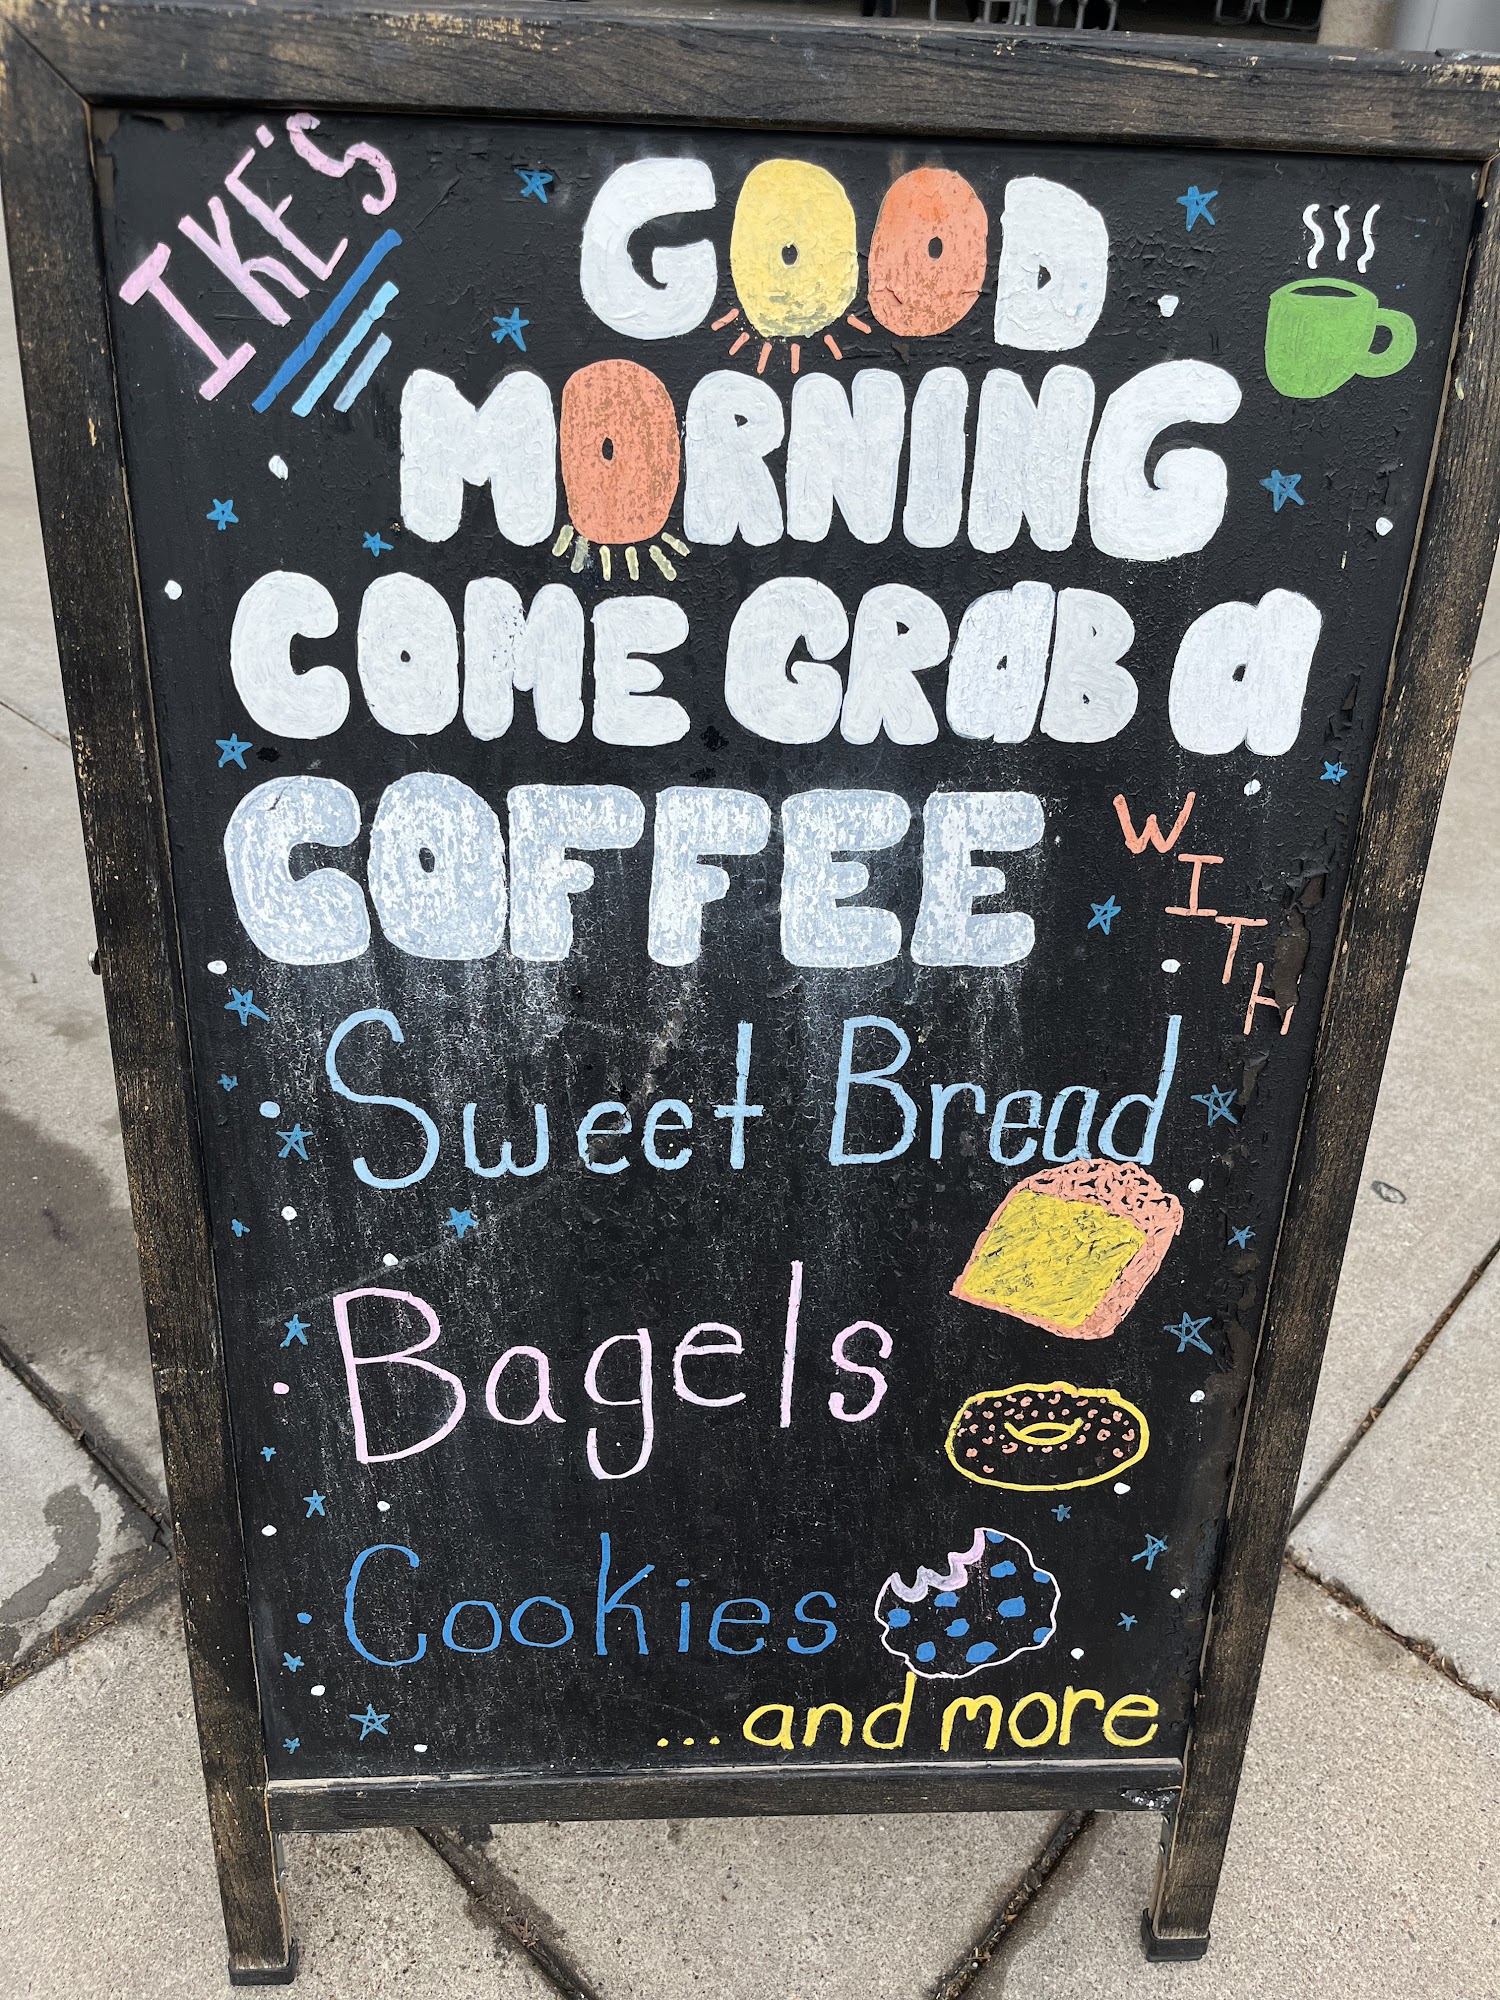 IKE'S
GOOD
MORNING
COME GRAB a
COFFEE
WITH
Sweet Bread
Bagels
Cookies
...and more